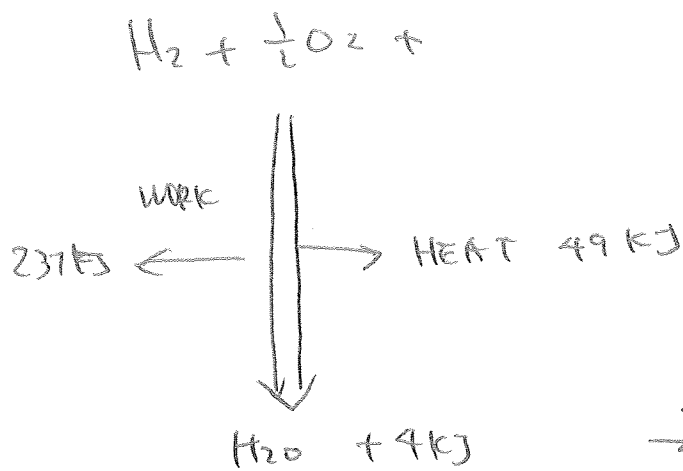 H₂ + ½O₂ +
WORK
237 KJ ← → HEAT 49 KJ
H₂O + 4KJ →